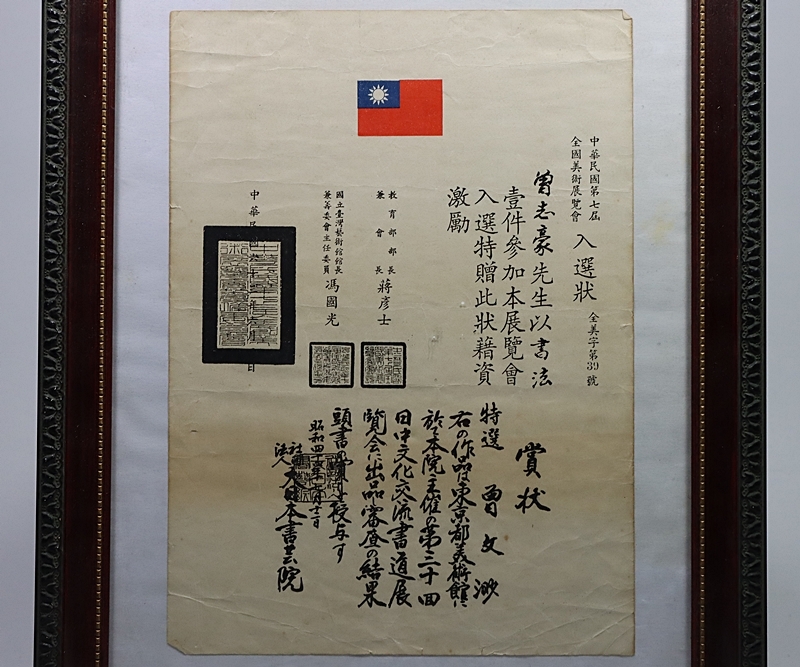 中華民國第七屆
全國美術展覽會
入選狀
全美字第39號
曾志豪先生以書法
壹件參加本展覽會
入選特贈此狀藉資
激勵
教育部部長
兼會長
蔣彥士
國立臺灣藝術館館長
兼籌委會主任委員
馮國光
中華民
日
賞状
特選 曾文
右の作品は東京都美術館に
於て本院主催の第三十回
日中文化交流書道展
覧会に出品審査の結果
頭書の賞を授与す
昭和四十
社団
法人
大日本書芸院